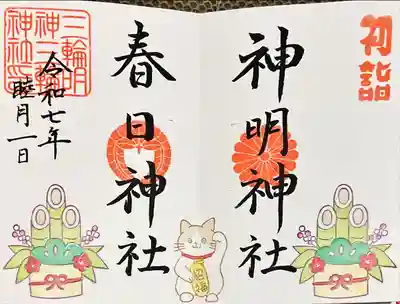 初詣
神明神社
春日神社
令和七年
睦月一日
三輪明
神三輪
神社印
招福